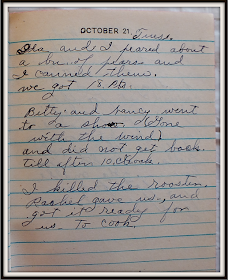 OCTOBER 21, Tues.
and I peared about
a bu. of pears and
I canned them.
we got 18 Pts.
Betty and Nancy went
to a show (Gone
with the wind)
and did not get back
till after 10 O'Clock.
I killed the rooster
Rachel gave us, and
got it ready for
us to cook.